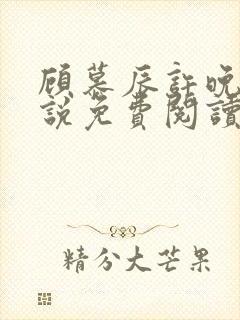 顾慕辰许晚
说免费阅读
精分大芒果